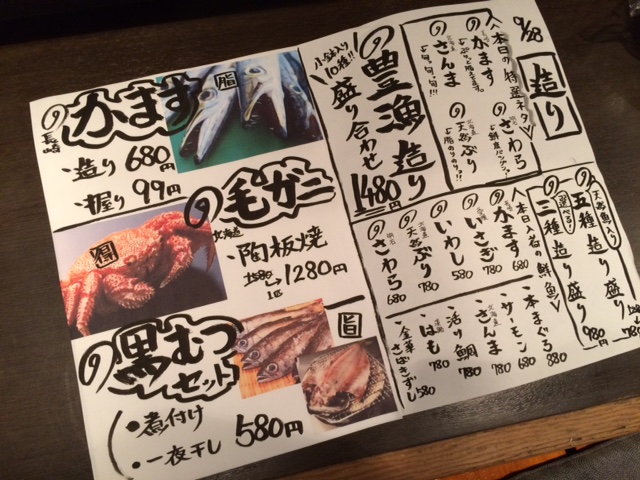 9/28
造り
〈本日の特選ネタ〉
かます
さわら
北海道
さんま
旬、旬、旬!!!
北海道
天然ぶり
脂のりのり!!
小鉢入り
10種!!
豊漁造り
盛り合わせ
1480円
天然魚入り
五種造り盛り
選べる!
三種造り盛り
980円
〈本日入荷の鮮魚〉
かます 680
いさぎ 780
いわし 580
北海道
天然ぶり 780
さわら 680
本まぐろ 880
サーモン 680
北海道
さんま 780
活り鯛 780
はも 780
金華さばきずし 580
長崎
かます
脂
・造り 680円
・握り 99円
毛ガニ
得
北海道
・陶板焼
1580→1280円
黒むつ
セット
旨
・煮付け
・一夜干し
580円